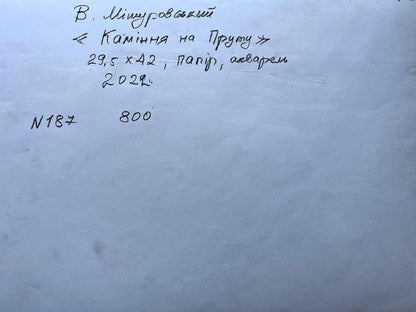 В. Мішуровський
« Каміння на Пруту »
29,5 x 42, папір, акварель
2022.
N187 800